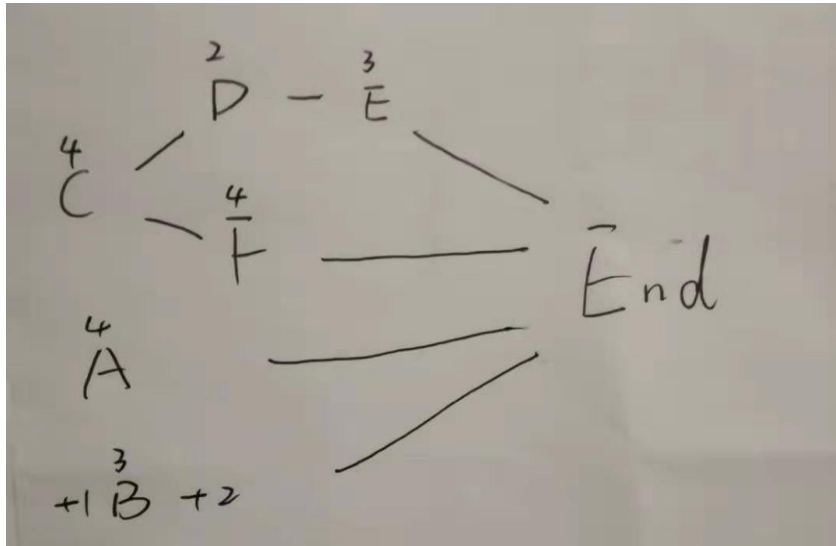 2 3
D - E
4
C
4
F
End
4
A
3
+1 B +2